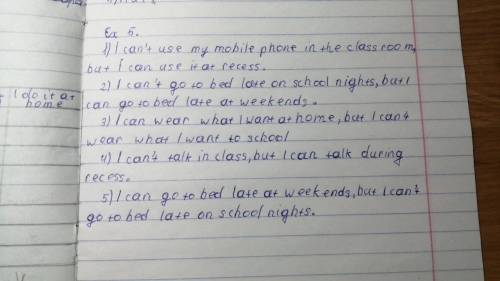 Ex 5.
1) I can't use my mobile phone in the classroom,
but I can use it at recess.
2) I can't go to bed late on school nights, but I
can go to bed late at weekends.
3) I can wear what I want at home, but I can't
wear what I want to school
4) I can't talk in class, but I can talk during
recess.
5) I can go to bed late at weekends, but I can't
go to bed late on school nights.
I do it at
home